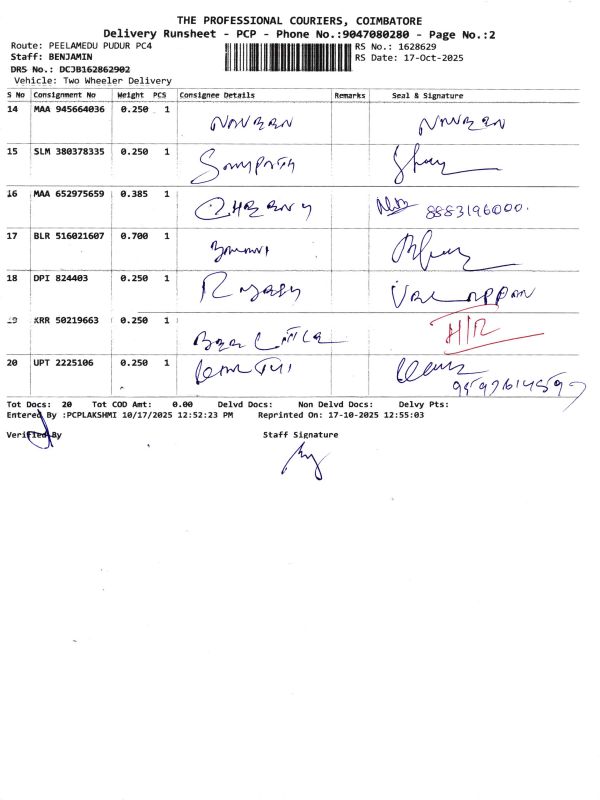 THE PROFESSIONAL COURIERS, COIMBATORE
Delivery Runsheet - PCP - Phone No.:9047080280 - Page No.:2
Route: PEELAMEDU PUDUR PC4
RS No.: 1628629
Staff: BENJAMIN
RS Date: 17-Oct-2025
DRS No.: DCJB162862902
Vehicle: Two Wheeler Delivery
S No Consignment No Weight PCS Consignee Details Remarks Seal & Signature
14 MAA 945664036 0.250 1 NAVEEN NAVEEN
15 SLM 380378335 0.250 1 Sampath
16 MAA 652975659 0.385 1 8883196000.
17 BLR 516021607 0.700 1
18 DPI 824403 0.250 1
19 KRR 50219663 0.250 1 H/R
20 UPT 2225106 0.250 1
Tot Docs: 20 Tot COD Amt: 0.00 Delvd Docs: Non Delvd Docs: Delvy Pts:
Entered By :PCPLAKSHMI 10/17/2025 12:52:23 PM Reprinted On: 17-10-2025 12:55:03
Verified By Staff Signature